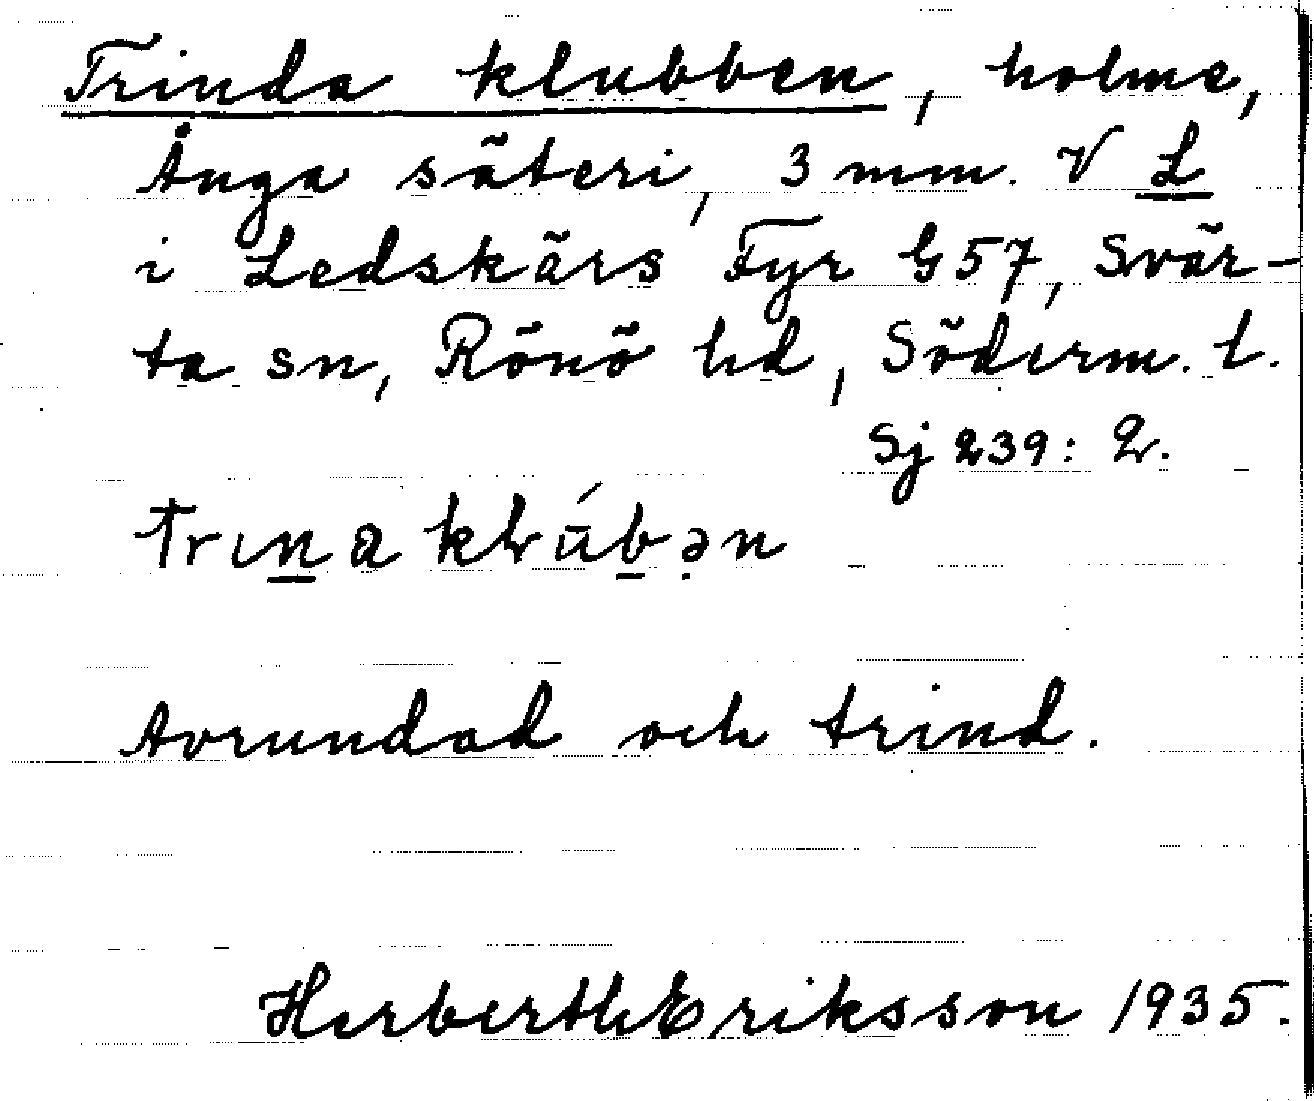 Trinda klubben, holme,
Ånga säteri, 3 mm. V L
i Ledskärs Fyr G57, Svär-
ta sn, Rönö hd, Söderm. l.
Sj 239: 2.
trına klúbən
Avrundad och trind.
Herberth Eriksson 1935.